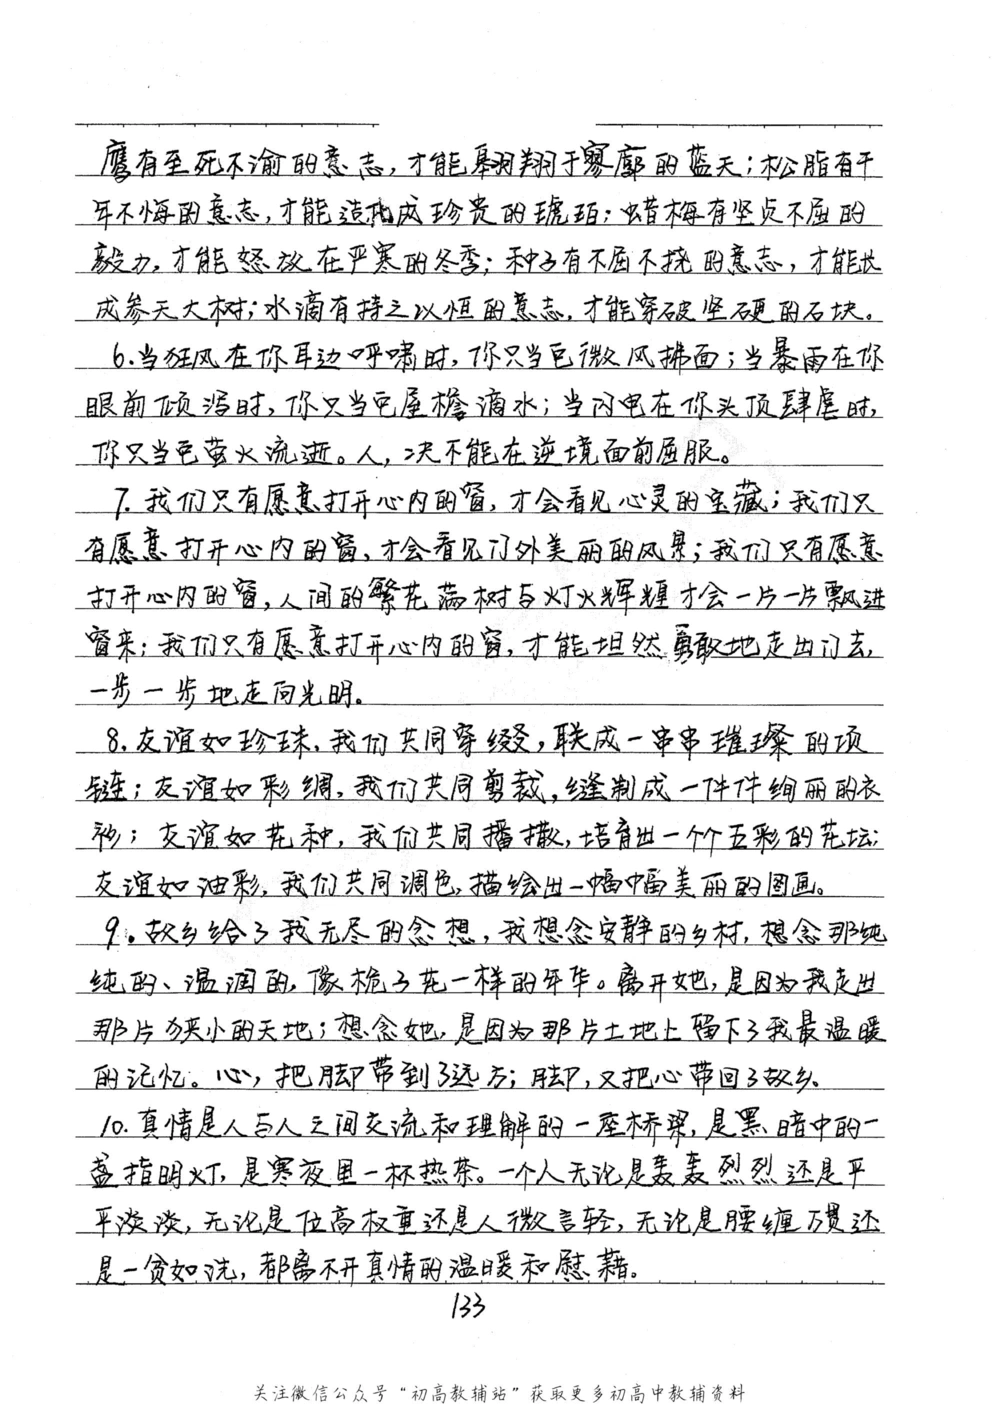 鹰有至死不渝的意志，才能翱翔于寥廓的蓝天；松脂有千
年不悔的意志，才能造化成珍贵的琥珀；蜡梅有坚贞不屈的
毅力，才能怒放在严寒的冬季；种子有不屈不挠的意志，才能长
成参天大树；水滴有持之以恒的意志，才能穿破坚硬的石块。
6.当狂风在你耳边呼啸时，你只当它微风拂面；当暴雨在你
眼前倾泻时，你只当它屋檐滴水；当闪电在你头顶肆虐时，
你只当它萤火流逝。人，决不能在逆境面前屈服。
7.我们只有愿意打开心内的窗，才会看见心灵的宝藏；我们只
有愿意打开心内的窗，才会看见门外美丽的风景；我们只有愿意
打开心内的窗，人间的繁花满树与灯火辉煌才会一片一片飘进
窗来；我们只有愿意打开心内的窗，才能坦然勇敢地走出门去，
一步一步地走向光明。
8.友谊如珍珠，我们共同穿缀，联成一串串璀璨的项
链；友谊如彩绸，我们共同剪裁，缝制成一件件绚丽的衣
衫；友谊如花种，我们共同播撒，培育出一个个五彩的花坛；
友谊如油彩，我们共同调色，描绘出一幅幅美丽的图画。
9.故乡给了我无尽的念想，我想念安静的乡村，想念那纯
纯的、温润的，像桅了花一样的年华。离开她，是因为我走出
那片狭小的天地；想念她，是因为那片土地上留下了我最温暖
的记忆。心，把脚带到了远方；脚，又把心带回了故乡。
10.真情是人与人之间交流和理解的一座桥梁，是黑暗中的一
盏指明灯，是寒夜里一杯热茶。一个人无论是轰轰烈烈还是平
平淡淡，无论是位高权重还是人微言轻，无论是腰缠万贯还
是一贫如洗，都离不开真情的温暖和慰藉。
133
关注微信公众号“初高教辅站”获取更多初高中教辅资料